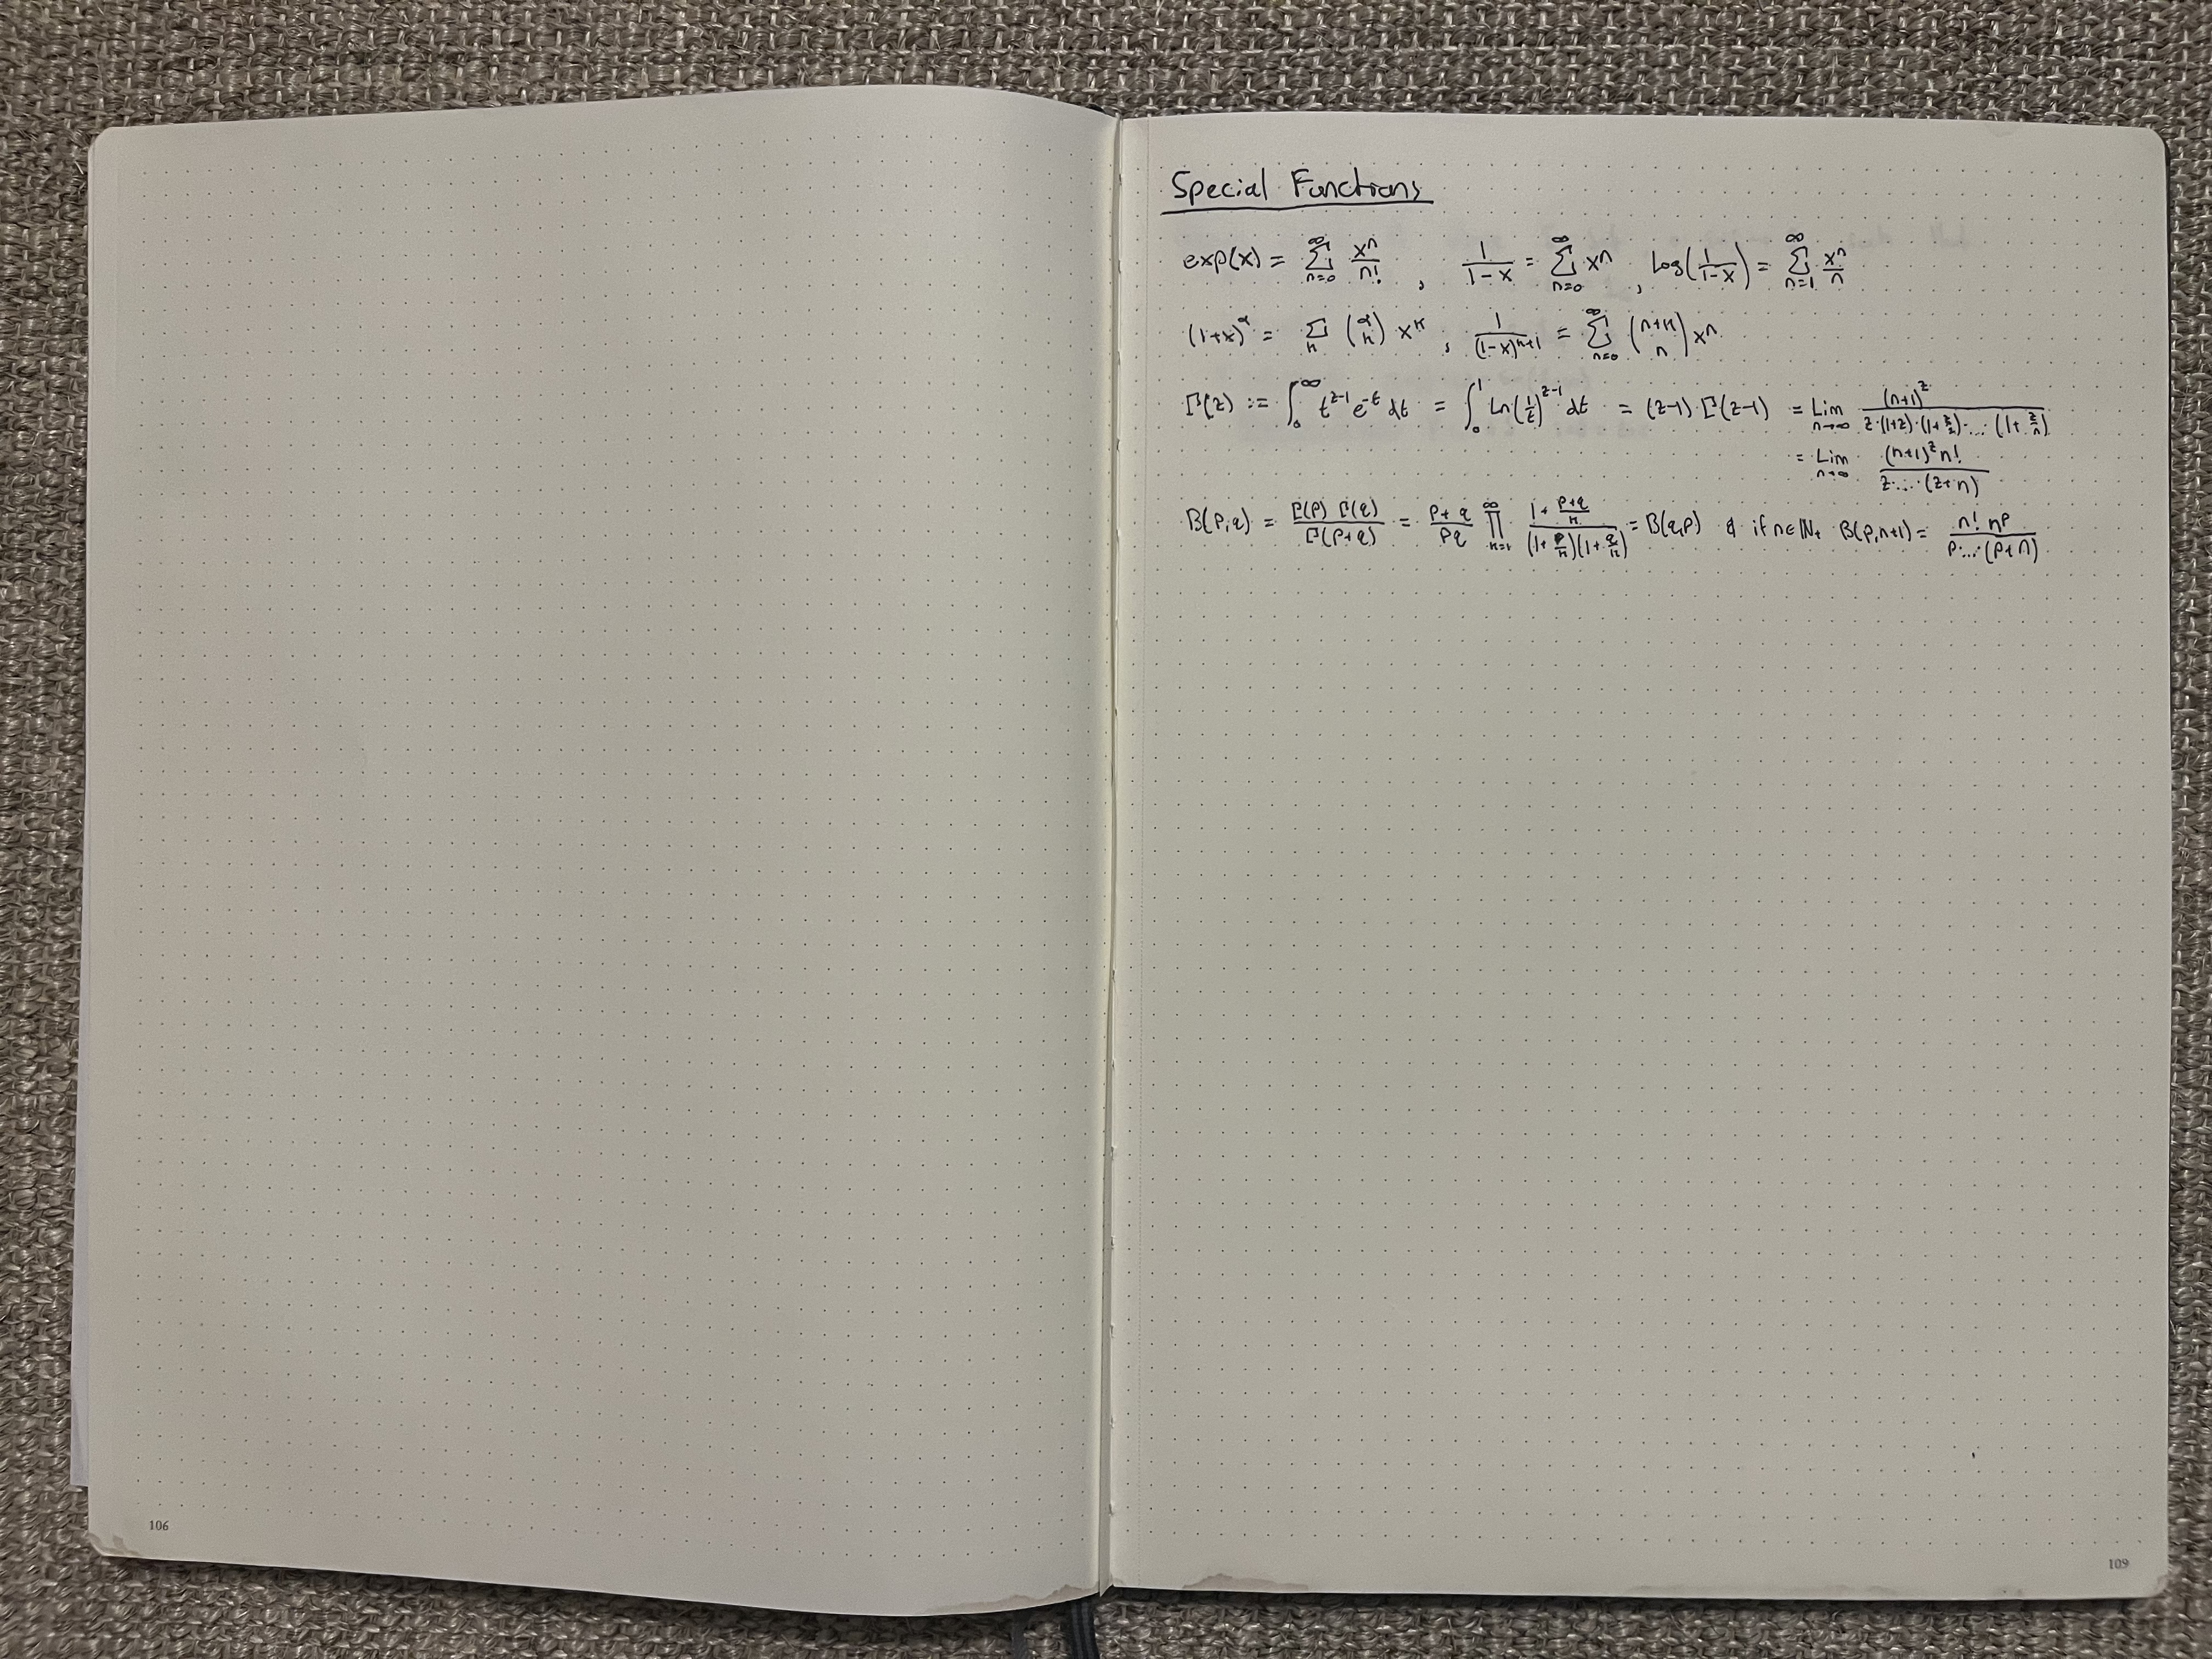 106
Special Functions
exp(x) = ∑_{n=0}^{∞} x^n/n! , 1/(1-x) = ∑_{n=0}^{∞} x^n , log(1/(1-x)) = ∑_{n=1}^{∞} x^n/n
(1+x)^α = ∑_k (α choose k) x^k , 1/(1-x)^{k+1} = ∑_{n=0}^{∞} (n+k choose n) x^n
Γ(z) := ∫_0^∞ t^{z-1} e^{-t} dt = ∫_0^1 ln(1/t)^{z-1} dt = (z-1) Γ(z-1) = Lim_{n→∞} (n+1)^z / (z·(1+z)·(1+z/2)· ... (1+z/n))
= Lim_{n→∞} (n+1)^z n! / (z· ... ·(z+n))
B(p,q) = Γ(p) Γ(q) / Γ(p+q) = (p+q)/(pq) ∏_{k=1}^{∞} (1 + (p+q)/k) / ((1+p/k)(1+q/k)) = B(q,p) & if n∈ℕ, B(p,n+1) = n! n^p / (p· ... ·(p+n))
109